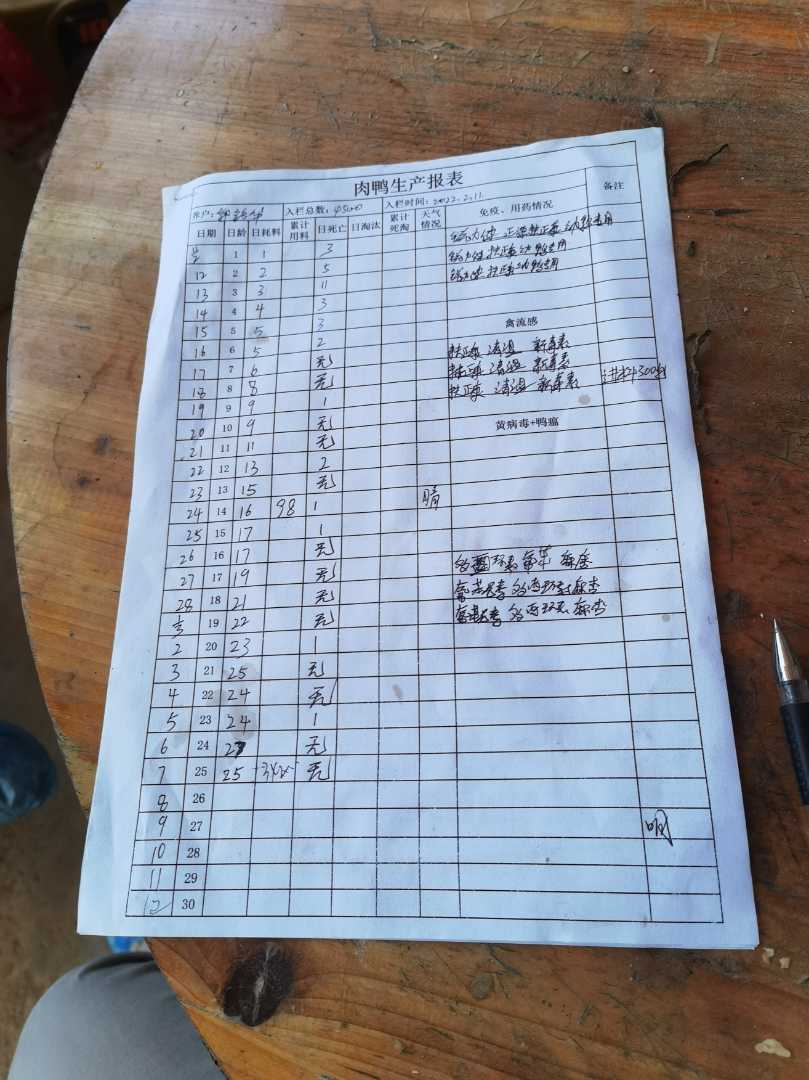 肉鸭生产报表
农户： 入栏总数：4500 入栏时间：2022.2.11 备注
日期 日龄 日耗料 累计用料 日死亡 日淘汰 累计死淘 天气情况 免疫、用药情况
1 1 3
12 2 2 5
13 3 3 11
14 4 4 3
15 5 5 3 禽流感
16 6 5 2 扶正 清温
17 7 6 无 扶正 清温
18 8 8 无 扶正 清温
19 9 9 1
20 10 9 无 黄病毒+鸭瘟
21 11 11 无
22 12 13 2
23 13 15 无
24 14 16 98 1 晴
25 15 17 1
26 16 17 无
27 17 19 无
28 18 21 无 多西环素
19 22 无 多西环素
2 20 23 1
3 21 25 无
4 22 24 无
5 23 24 1
6 24 无
7 25 25 无
8 26
9 27
10 28
11 29
12 30